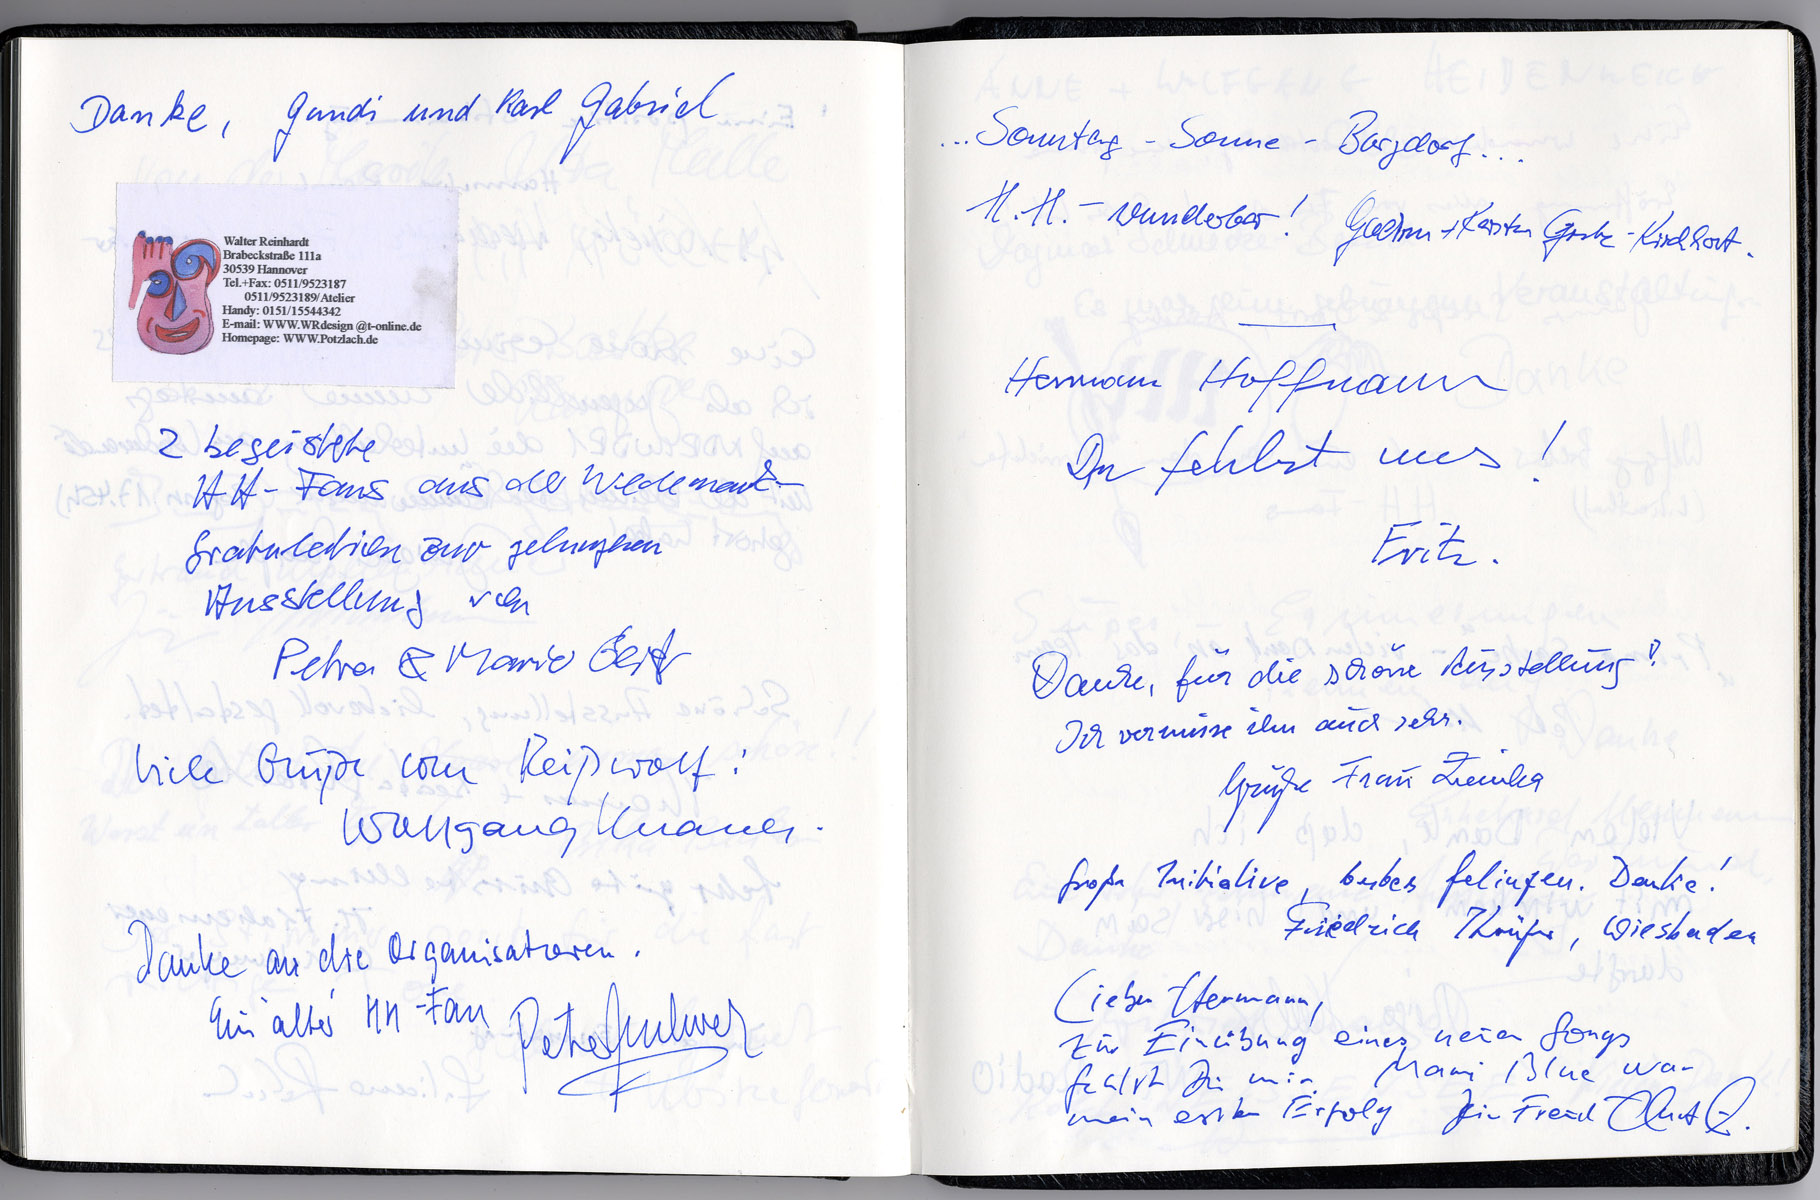 Danke, Gundi und Karl Gabriel
Walter Reinhardt
Brabeckstraße 111a
30539 Hannover
Tel.+Fax: 0511/9523187
0511/9523189/Atelier
Handy: 0151/15544342
E-mail: WWW.WRdesign @t-online.de
Homepage: WWW.Potzlach.de
2 begeisterte
HH-Fans aus der Wedemark -
Gratulation zur gelungenen
Ausstellung von
Petra & Mario
Viele Grüße vom Reißwolf!
Wolfgang Knauer.
Danke an die Organisatoren.
Ein alter HH-Fan Peter
...Sonntag - Sonne - Burgdorf...
H.H. - wunderbar! Gudrun + Karsten - Kirchhoff.
Hermann Hoffmann
Du fehlst uns!
Fritz.
Danke, für die schöne Ausstellung!
Ich vermisse ihn auch sehr.
Grüße Frau
Große Initiative, bestes Gelingen. Danke!
Friedrich Wiesbaden
Lieber Hermann,
zur Einübung eines neuen Songs
fehlst Du mir. Mami Blue wa-
mein erster Erfolg Dein Freund